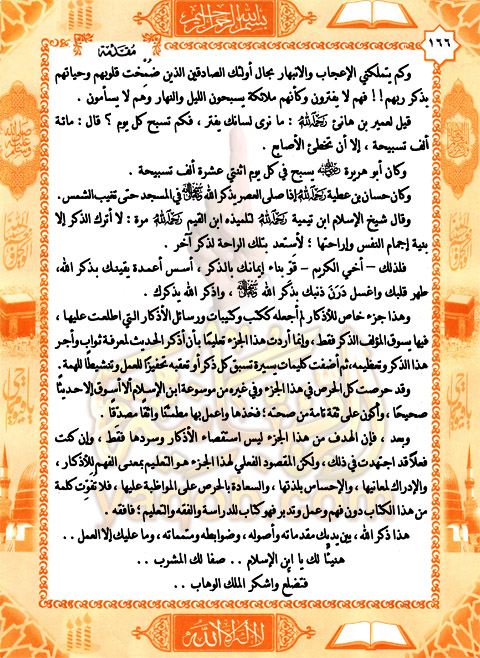 بسم الله الرحمن الرحيم
١٦٦
مقدمة
وكم يتملكني الإعجاب والانبهار بحال أولئك الصادقين الذين ضُمِّخت قلوبهم وحياتهم
بذكر ربهم !! فهم لا يفترون وكأنهم ملائكة يسبحون الليل والنهار وهم لا يسأمون .
قيل لعمير بن هانئ رحمه الله : ما نرى لسانك يفتر ، فكم تسبح كل يوم ؟ قال : مائة
ألف تسبيحة ، إلا أن تخطئ الأصابع .
وكان أبو هريرة رضي الله عنه يسبح في كل يوم اثنتي عشرة ألف تسبيحة .
وكان حسان بن عطية رحمه الله إذا صلى العصر يذكر الله في المسجد حتى تغيب الشمس .
وقال شيخ الإسلام ابن تيمية رحمه الله لتلميذه ابن القيم رحمه الله مرة : لا أترك الذكر إلا
بنية إجمام النفس وإراحتها ؛ لأستعد بتلك الراحة لذكر آخر .
فلذلك – أخي الكريم – قوِّ بناء إيمانك بالذكر ، أسس أعمدة يقينك بذكر الله،
طهر قلبك واغسل دَرَنَ ذنبك بذكر الله ، واذكر الله يذكرك .
وهذا جزء خاص للأذكار لم أجعله ككتب وكتيبات ورسائل الأذكار التي اطلعت عليها ،
فيها سوق المؤلف الذكر فقط، وإنما أردت هذا الجزء تعليمًا بأن أذكر الحديث لمعرفة ثواب وأجر
هذا الذكر وتعظيمه، ثم أضفت كلمات يسيرة تسبق كل ذكر أو تعقبه تحفيزًا للعمل وتنشيطًا للهمة .
وقد حرصت كل الحرص في هذا الجزء وفي غيره من موسوعة ابن الإسلام ألا أسوق إلا حديثًا
صحيحًا ، وأكون على ثقة تامة من صحته ؛ فخذها واعمل بها مطمئنًا واثقًا مصدقًا .
وبعد ، فإن الهدف من هذا الجزء ليس استقصاء الأذكار وسردها فقط ، وإن كنت
فعلًا قد اجتهدت في ذلك ، ولكن المقصود الفعلي لهذا الجزء هو التعليم بمعنى الفهم للأذكار ،
والإدراك لمعانيها ، والإحساس بلذتها ، والسعادة بالحرص على المواظبة عليها ، فلا تفوِّت كلمة
من هذا الكتاب دون فهم وعمل وتدبر فهو كتاب للدراسة والفقه والتعليم ؛ فافقه .
هذا ذكر الله ، بين يديك مقدماته وأصوله ، وضوابطه ومتمماته ، وما عليك إلا العمل ..
هنيئًا لك يا ابن الإسلام .. صفا لك المشرب ..
فتضلَّع واشكر الملك الوهاب ..
لا إله إلا الله